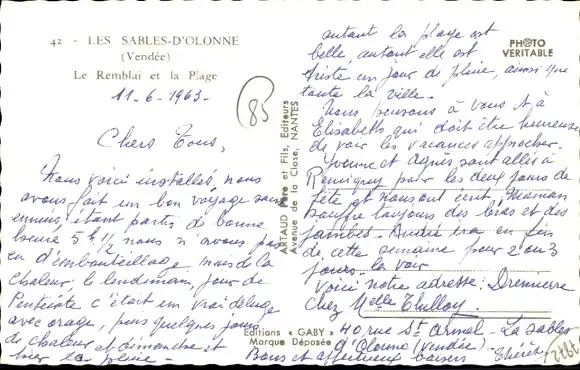 42 - LES SABLES-D'OLONNE
(Vendée)
Le Remblai et la Plage
11-6-1963-
Chers Tous,
Nous voici installés, nous
avons fait un bon voyage sans
ennuis, étant partis de bonne
heure 5h½, nous n'avons pas
eu d'embouteillage mais de la
chaleur; le lendemain, jour de
Pentecôte c'était un vrai déluge
avec orage, puis quelques jours
de chaleur et dimanche et
hier la pluie -
85
ARTAUD Père et Fils, Editeurs
Avenue de la Close, NANTES
Editions « GABY »
Marque Déposée
PHOTO
VERITABLE
autant la plage est
belle, autant elle est
triste un jour de pluie, ainsi que
toute la ville.
Nous pensons à vous t, à
Elisabeth qui doit être heureuse
de voir les vacances approcher.
Yvonne et Agnès sont allés à
Remigny pour les deux jours de
fête et nous ont Maman
souffre toujours des bras et des
jambes. André ira en fin
de cette semaine pour 2 ou 3
jours la voir
Voici notre adresse:
chez Melle Thulloy
40 rue St Armel - La Sables
d'Olonne (Vendée)
Bons et affectueux baisers